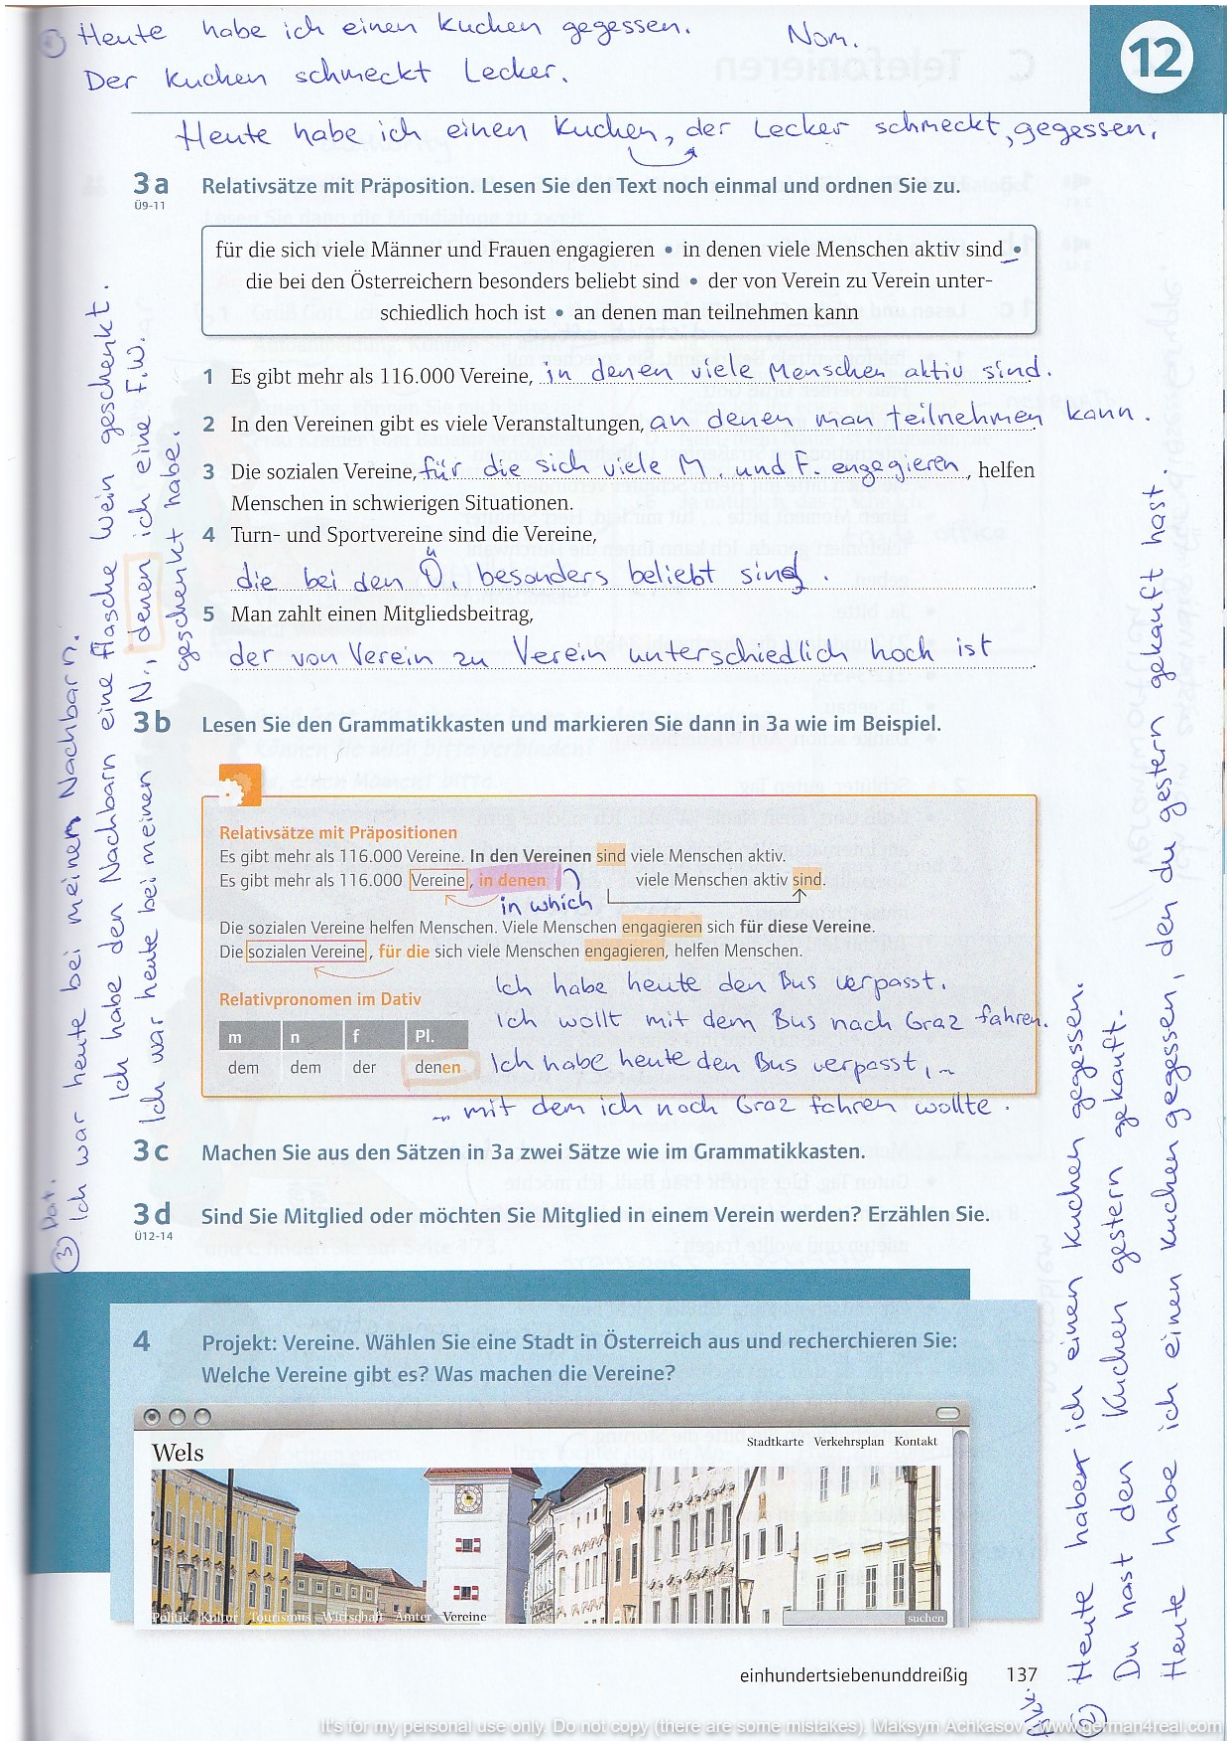 ① Heute habe ich einen Kuchen gegessen. Nom.
Der Kuchen schmeckt Lecker.
12
Heute habe ich einen Kuchen, der Lecker schmeckt, gegessen.
3a Relativsätze mit Präposition. Lesen Sie den Text noch einmal und ordnen Sie zu.
Ü9-11
für die sich viele Männer und Frauen engagieren • in denen viele Menschen aktiv sind •
die bei den Österreichern besonders beliebt sind • der von Verein zu Verein unter-
schiedlich hoch ist • an denen man teilnehmen kann
1 Es gibt mehr als 116.000 Vereine, in denen viele Menschen aktiv sind.
2 In den Vereinen gibt es viele Veranstaltungen, an denen man teilnehmen kann.
3 Die sozialen Vereine, für die sich viele M. und F. engegieren, helfen
Menschen in schwierigen Situationen.
4 Turn- und Sportvereine sind die Vereine,
die bei den Ö. besonders beliebt sind.
5 Man zahlt einen Mitgliedsbeitrag,
der von Verein zu Verein unterschiedlich hoch ist
3b Lesen Sie den Grammatikkasten und markieren Sie dann in 3a wie im Beispiel.
Relativsätze mit Präpositionen
Es gibt mehr als 116.000 Vereine. In den Vereinen sind viele Menschen aktiv.
Es gibt mehr als 116.000 Vereine, in denen viele Menschen aktiv sind.
in which
Die sozialen Vereine helfen Menschen. Viele Menschen engagieren sich für diese Vereine.
Die sozialen Vereine, für die sich viele Menschen engagieren, helfen Menschen.
Ich habe heute den Bus verpasst.
Relativpronomen im Dativ
Ich wollt mit dem Bus nach Graz fahren.
m n f Pl.
dem dem der denen
Ich habe heute den Bus verpasst, ~
~ mit dem ich noch Graz fahren wollte.
3c Machen Sie aus den Sätzen in 3a zwei Sätze wie im Grammatikkasten.
3d Sind Sie Mitglied oder möchten Sie Mitglied in einem Verein werden? Erzählen Sie.
Ü12-14
4 Projekt: Vereine. Wählen Sie eine Stadt in Österreich aus und recherchieren Sie:
Welche Vereine gibt es? Was machen die Vereine?
Wels
Stadtkarte Verkehrsplan Kontakt
Politik Kultur Tourismus Wirtschaft Ämter Vereine suchen
einhundertsiebenunddreißig 137
③ Dat.
Ich war heute bei meinem Nachbarn.
Ich habe den Nachbarn eine Flasche Wein geschenkt.
Ich war heute bei meinen N., denen ich eine F.W.
geschenkt habe.
② Akk.
Heute haben ich einen Kuchen gegessen.
Du hast den Kuchen gestern gekauft.
Heute habe ich einen Kuchen gegessen, den du gestern gekauft hast.
It's for my personal use only. Do not copy (there are some mistakes). Maksym Achkasov - www.german4real.com